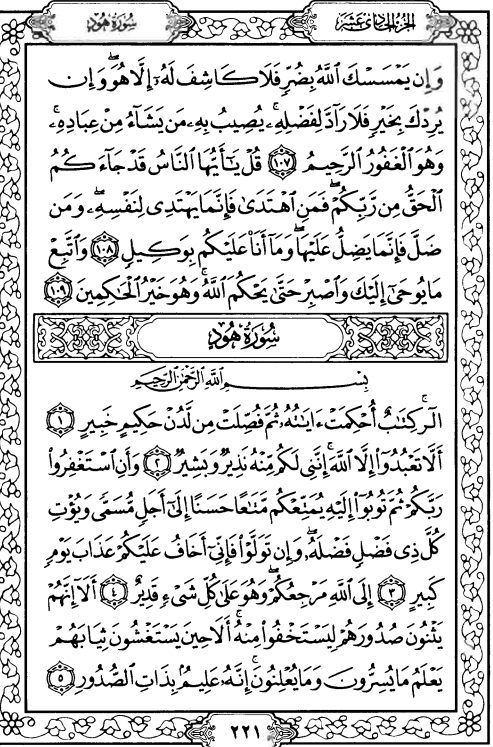 الجزء الحادي عشر سورة هود
وَإِن يَمْسَسْكَ ٱللَّهُ بِضُرٍّ فَلَا كَاشِفَ لَهُۥٓ إِلَّا هُوَۖ وَإِن
يُرِدْكَ بِخَيْرٍ فَلَا رَآدَّ لِفَضْلِهِۦۚ يُصِيبُ بِهِۦ مَن يَشَآءُ مِنْ عِبَادِهِۦۚ
وَهُوَ ٱلْغَفُورُ ٱلرَّحِيمُ ١٠٧ قُلْ يَٰٓأَيُّهَا ٱلنَّاسُ قَدْ جَآءَكُمُ
ٱلْحَقُّ مِن رَّبِّكُمْۖ فَمَنِ ٱهْتَدَىٰ فَإِنَّمَا يَهْتَدِى لِنَفْسِهِۦۖ وَمَن
ضَلَّ فَإِنَّمَا يَضِلُّ عَلَيْهَاۖ وَمَآ أَنَا۠ عَلَيْكُم بِوَكِيلٍ ١٠٨ وَٱتَّبِعْ
مَا يُوحَىٰٓ إِلَيْكَ وَٱصْبِرْ حَتَّىٰ يَحْكُمَ ٱللَّهُۚ وَهُوَ خَيْرُ ٱلْحَٰكِمِينَ ١٠٩
سُورَةُ هُودٍ
بِسْمِ ٱللَّهِ ٱلرَّحْمَٰنِ ٱلرَّحِيمِ
الٓرۚ كِتَٰبٌ أُحْكِمَتْ ءَايَٰتُهُۥ ثُمَّ فُصِّلَتْ مِن لَّدُنْ حَكِيمٍ خَبِيرٍ ١
أَلَّا تَعْبُدُوٓا۟ إِلَّا ٱللَّهَۚ إِنَّنِى لَكُم مِّنْهُ نَذِيرٌ وَبَشِيرٌ ٢ وَأَنِ ٱسْتَغْفِرُوا۟
رَبَّكُمْ ثُمَّ تُوبُوٓا۟ إِلَيْهِ يُمَتِّعْكُم مَّتَٰعًا حَسَنًا إِلَىٰٓ أَجَلٍ مُّسَمًّى وَيُؤْتِ
كُلَّ ذِى فَضْلٍ فَضْلَهُۥۖ وَإِن تَوَلَّوْا۟ فَإِنِّىٓ أَخَافُ عَلَيْكُمْ عَذَابَ يَوْمٍ
كَبِيرٍ ٣ إِلَى ٱللَّهِ مَرْجِعُكُمْۖ وَهُوَ عَلَىٰ كُلِّ شَىْءٍ قَدِيرٌ ٤ أَلَآ إِنَّهُمْ
يَثْنُونَ صُدُورَهُمْ لِيَسْتَخْفُوا۟ مِنْهُۚ أَلَا حِينَ يَسْتَغْشُونَ ثِيَابَهُمْ
يَعْلَمُ مَا يُسِرُّونَ وَمَا يُعْلِنُونَۚ إِنَّهُۥ عَلِيمٌۢ بِذَاتِ ٱلصُّدُورِ ٥
٢٢١